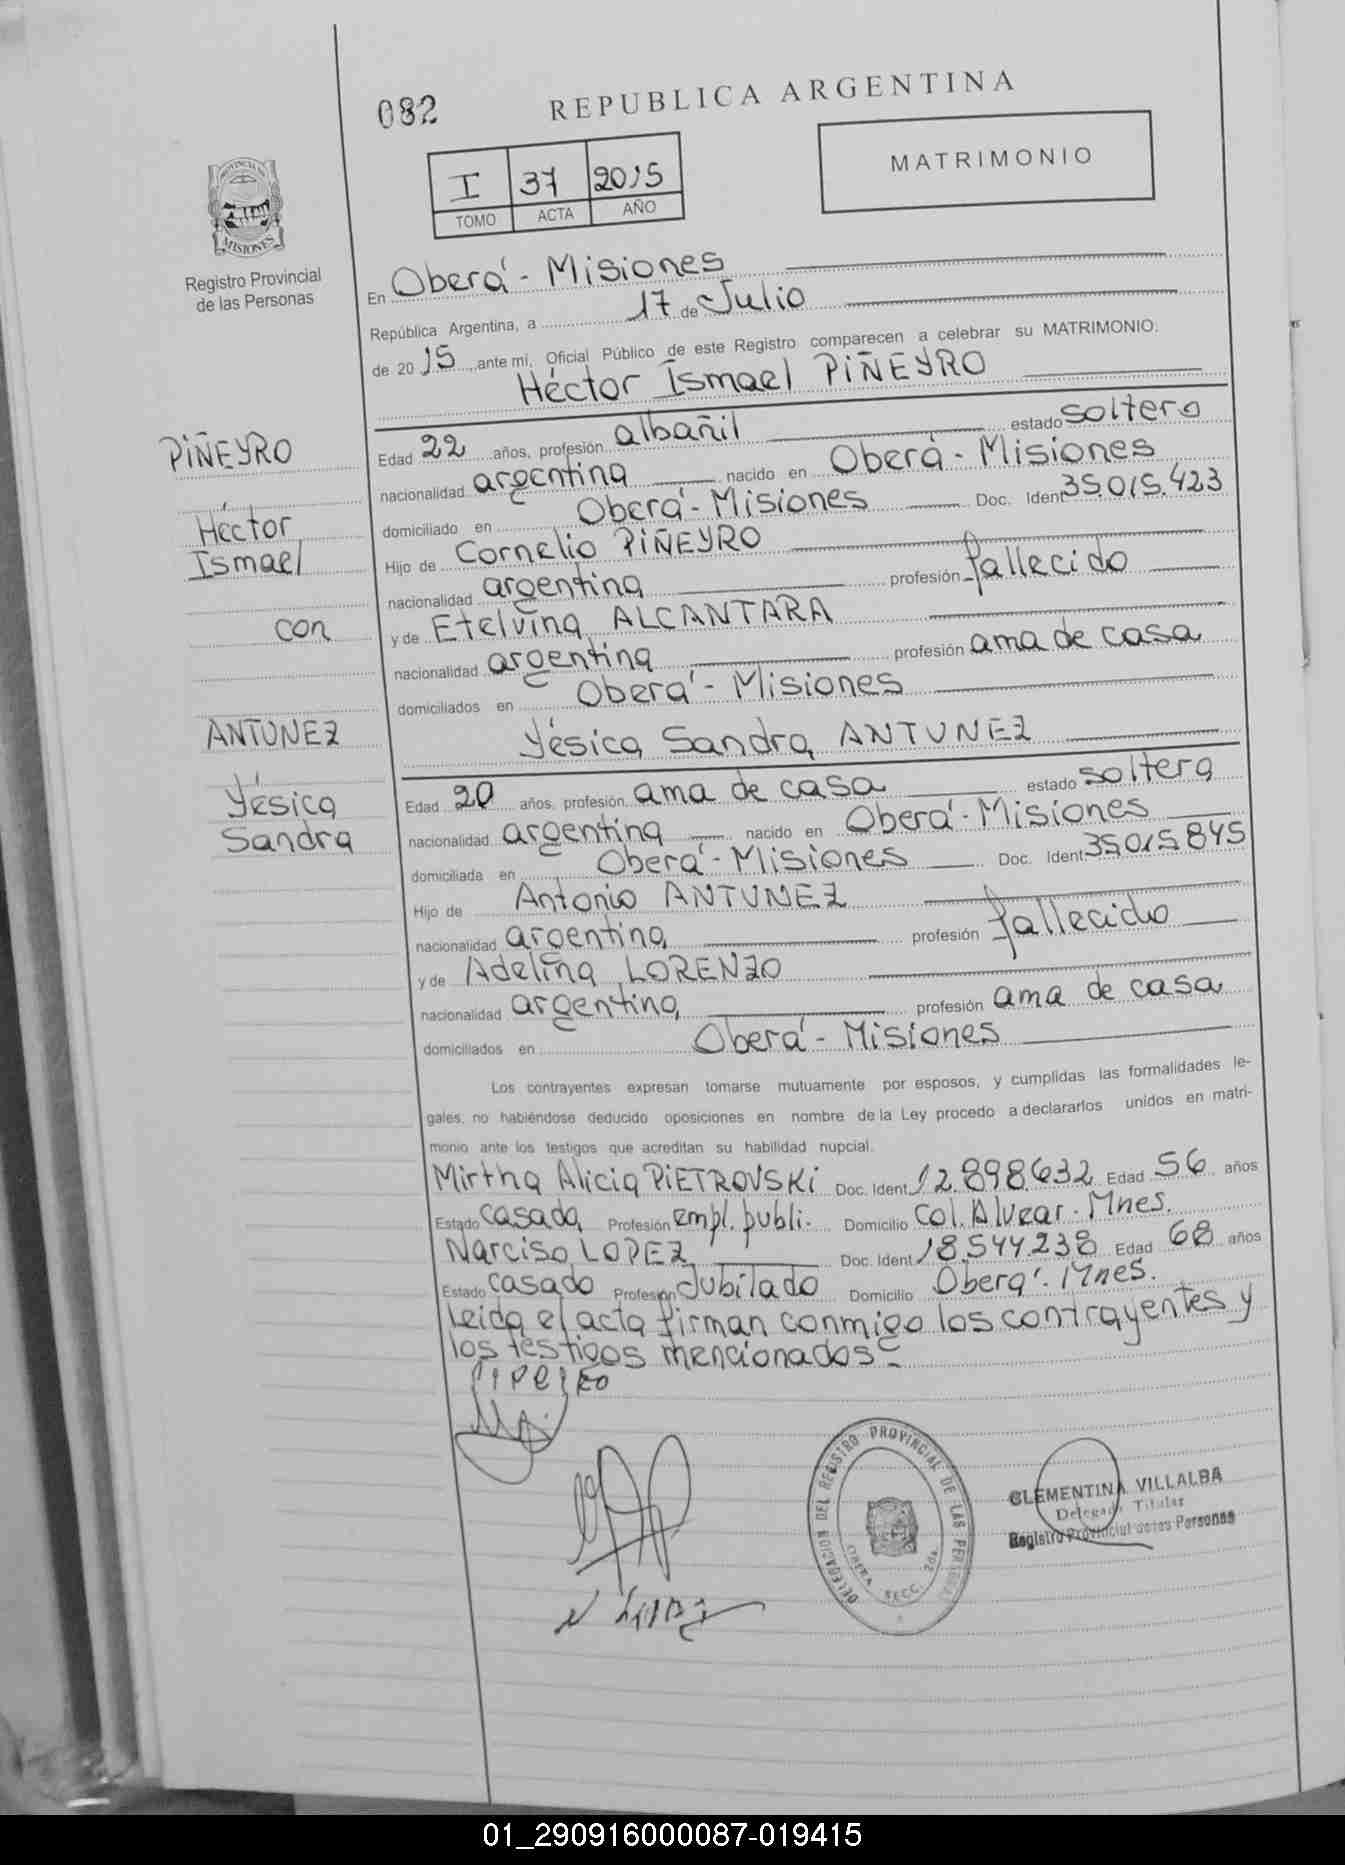 082
REPUBLICA ARGENTINA
I 37 2015
TOMO ACTA AÑO
MATRIMONIO
PROVINCIA DE
MISIONES
Registro Provincial
de las Personas
En Oberá - Misiones
República Argentina, a 17 de Julio
de 2015, ante mí, Oficial Público de este Registro comparecen a celebrar su MATRIMONIO:
Héctor Ismael PIÑEYRO
Edad 22 años, profesión albañil estado soltero
nacionalidad argentina nacido en Oberá - Misiones
domiciliado en Oberá - Misiones Doc. Ident 35.015.423
Hijo de Cornelio PIÑEYRO
nacionalidad argentina profesión fallecido
y de Etelvina ALCANTARA
nacionalidad argentina profesión ama de casa
domiciliados en Oberá - Misiones
Yésica Sandra ANTUNEZ
Edad 20 años, profesión ama de casa estado soltera
nacionalidad argentina nacido en Oberá - Misiones
domiciliada en Oberá - Misiones Doc. Ident 35.015.845
Hijo de Antonio ANTUNEZ
nacionalidad argentina profesión fallecido
y de Adelina LORENZO
nacionalidad argentina profesión ama de casa
domiciliados en Oberá - Misiones
PIÑEYRO
Héctor
Ismael
con
ANTUNEZ
Yésica
Sandra
Los contrayentes expresan tomarse mutuamente por esposos, y cumplidas las formalidades le-
gales, no habiéndose deducido oposiciones en nombre de la Ley procedo a declararlos unidos en matri-
monio ante los testigos que acreditan su habilidad nupcial.
Mirtha Alicia PIETROVSKI Doc. Ident 12.898.632 Edad 56 años
Estado casada Profesión empl. publi. Domicilio Col. Alvear - Mnes.
Narciso LOPEZ Doc. Ident 18.544.238 Edad 68 años
Estado casado Profesión Jubilado Domicilio Oberá - Mnes.
Leida el acta firman conmigo los contrayentes y
los testigos mencionados -
DELEGACION DEL REGISTRO PROVINCIAL DE LAS PERSONAS
OBERA SECC. 2da.
CLEMENTINA VILLALBA
Delegada Titular
Registro Provincial de las Personas
01_290916000087-019415